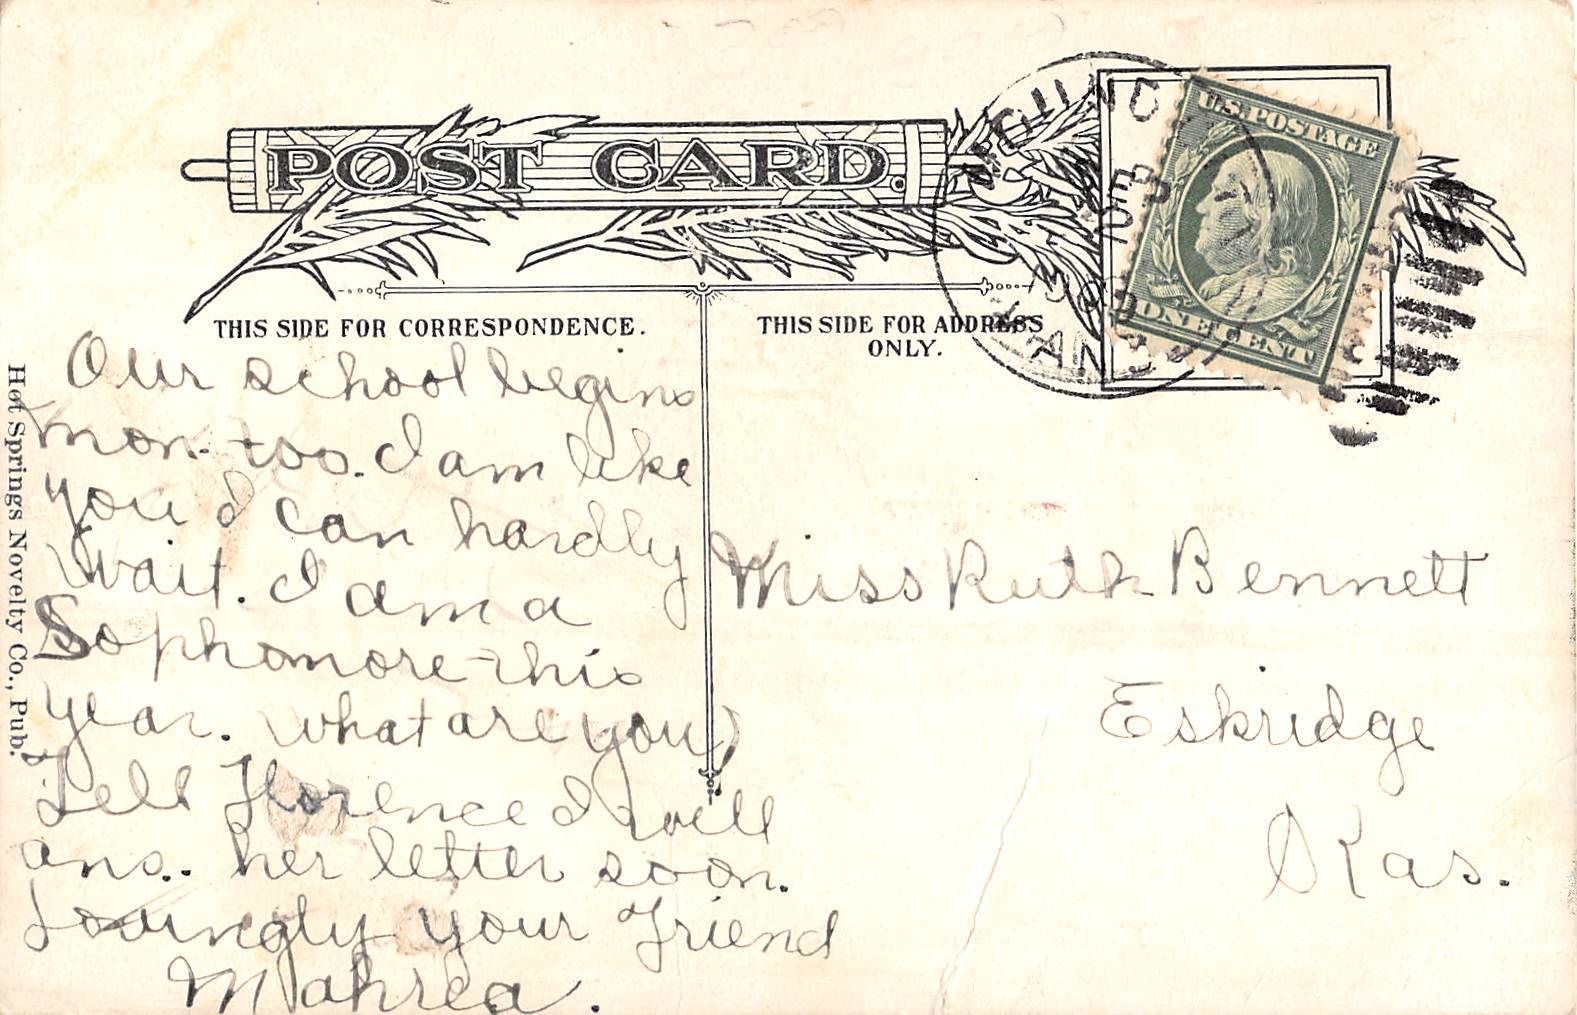 POST CARD.
U.S. POSTAGE
ONE CENT
THIS SIDE FOR CORRESPONDENCE.
THIS SIDE FOR ADDRESS
ONLY.
Hot Springs Novelty Co., Pub.
Our school begins
mon. too. I am like
you I can hardly
wait. I am a
Sophomore this
year. what are you?
Tell Florence I will
ans. her letter soon.
Lovingly your Friend
Mahrea.
Miss Ruth Bennett
Eskridge
Kas.